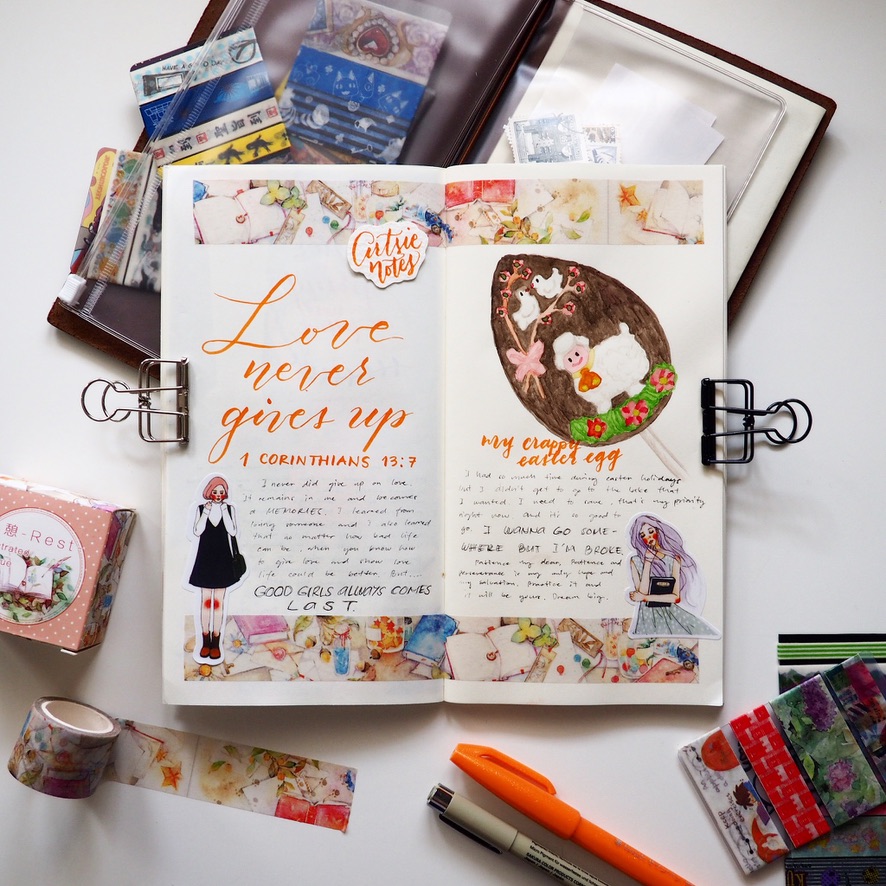 HAVE A GOOD DAY
Artsie
notes
Love
never
gives up
1 CORINTHIANS 13:7
I never did give up on love.
It remains in me and becomes
a MEMORIES. I learned from
loving someone and I also learned
that no matter how bad life
can be, when you know how
to give love and show love
life could be better. But....
GOOD GIRLS ALWAYS COMES
LAST.
my crappy
easter egg
I had so much time during easter holidays
but I didn't get to go to the lake that
I wanted. I need to save, that's my priority
right now and it is so good to
go. I WANNA GO SOME-
WHERE BUT I'M BROKE.
Patience my dear. Patience and
perseverance is my only hope and
my salvation. Practice it and
it will be yours. Dream big.
憩-Rest